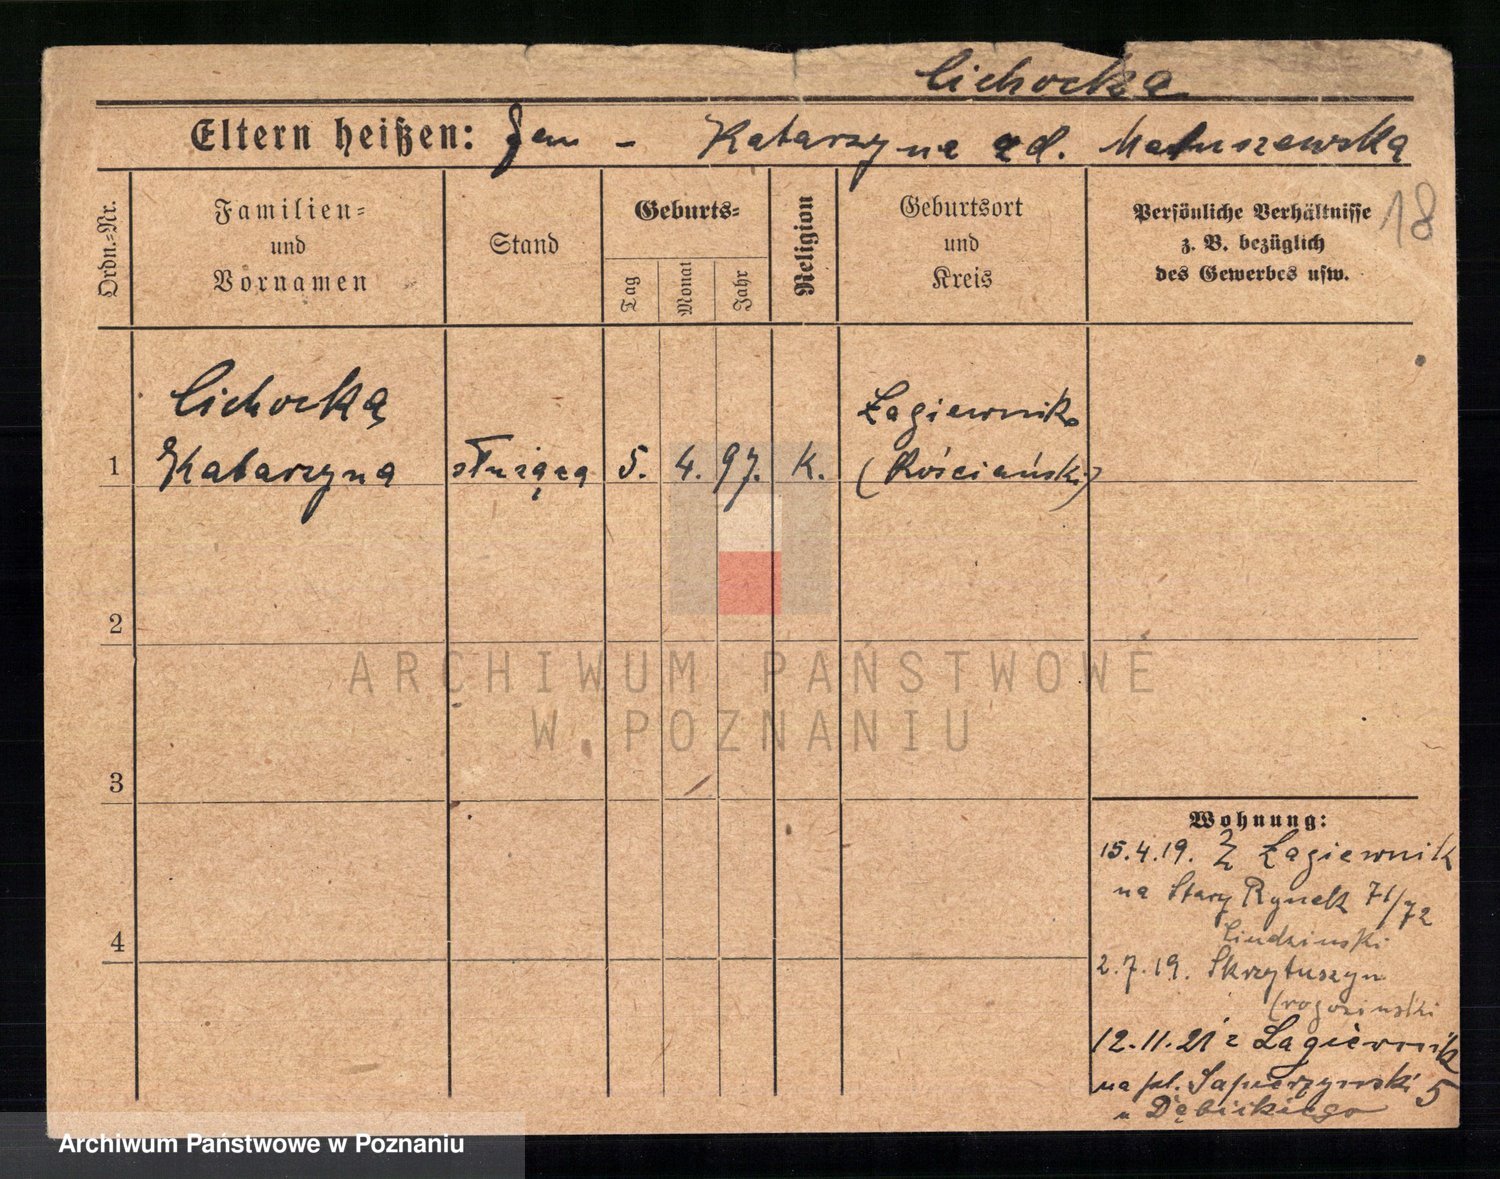 Cichocka
Eltern heißen: Jan - Katarzyna zd. Matuszewską
18
Ordn.-Nr.
Familien-
und
Vornamen
Stand
Geburts-
Tag
Monat
Jahr
Religion
Geburtsort
und
Kreis
Persönliche Verhältnisse
z. B. bezüglich
des Gewerbes usw.
Cichocką
1 Katarzyna służąca 5. 4. 97. K.
Łagiewnik
(Kościański)
2
3
4
Wohnung:
15.4.19. Z Łagiewnik
na Stary Rynek 71/72
2.7.19. Skrzytuszyn
(rogoziński
12.11.21 z Łagiewnik
na pl. Sapieżyński 5
u Dębickiego
ARCHIWUM PAŃSTWOWE
W POZNANIU
Archiwum Państwowe w Poznaniu